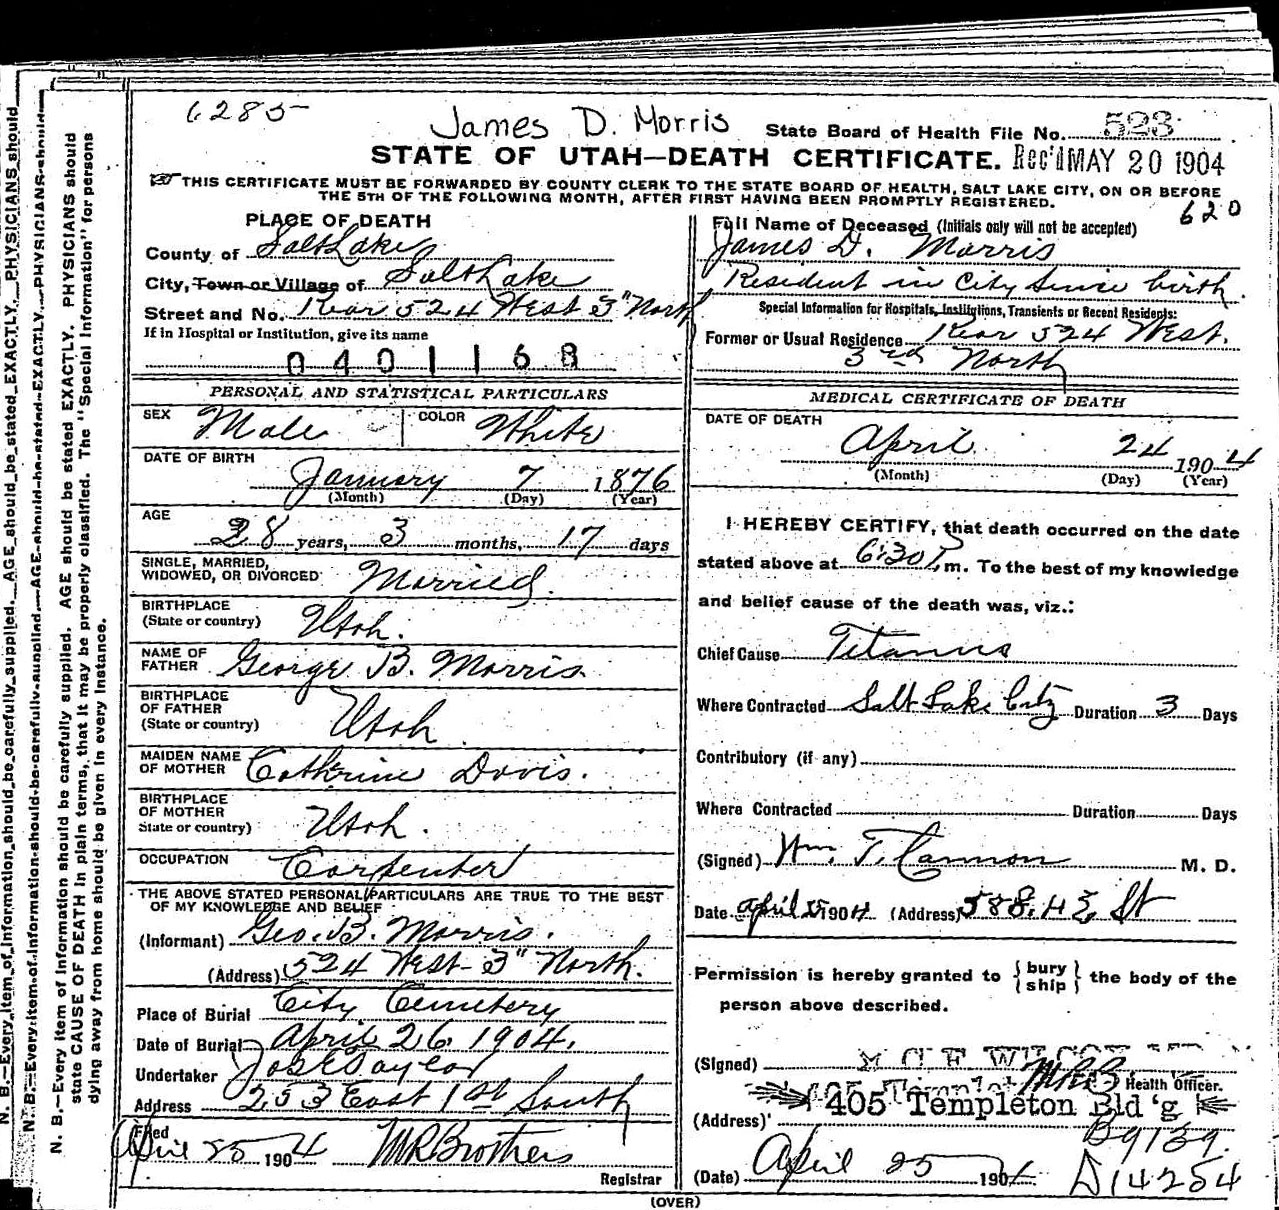 6285
James D. Morris
State Board of Health File No. 523
STATE OF UTAH—DEATH CERTIFICATE. Rec'd MAY 20 1904
THIS CERTIFICATE MUST BE FORWARDED BY COUNTY CLERK TO THE STATE BOARD OF HEALTH, SALT LAKE CITY, ON OR BEFORE
THE 5TH OF THE FOLLOWING MONTH, AFTER FIRST HAVING BEEN PROMPTLY REGISTERED.
620
PLACE OF DEATH
County of Salt Lake
City, Town or Village of Salt Lake
Street and No. Rear 524 West 3" North
If in Hospital or Institution, give its name
0401168
Full Name of Deceased (Initials only will not be accepted)
James D. Morris
Resident in City Since birth.
Special Information for Hospitals, Institutions, Transients or Recent Residents:
Former or Usual Residence Rear 524 West.
3rd North
PERSONAL AND STATISTICAL PARTICULARS
SEX Male COLOR White
DATE OF BIRTH
January 7 1876
(Month) (Day) (Year)
AGE
28 years, 3 months, 17 days
SINGLE, MARRIED,
WIDOWED, OR DIVORCED Married.
BIRTHPLACE
(State or country) Utah.
NAME OF
FATHER George B. Morris.
BIRTHPLACE
OF FATHER
(State or country) Utah
MAIDEN NAME
OF MOTHER Cathrine Davis.
BIRTHPLACE
OF MOTHER
State or country) Utah.
OCCUPATION Carpenter
THE ABOVE STATED PERSONAL PARTICULARS ARE TRUE TO THE BEST
OF MY KNOWLEDGE AND BELIEF
(Informant) Geo. B. Morris.
(Address) 524 West 3" North.
Place of Burial City Cemetery
Date of Burial April 26 1904.
Undertaker Jos E Taylor
Address 253 East 1st South
Filed
April 25 1904 M R Brothers
Registrar
MEDICAL CERTIFICATE OF DEATH
DATE OF DEATH
April 24 1904
(Month) (Day) (Year)
I HEREBY CERTIFY, that death occurred on the date
stated above at 6:30 P. m. To the best of my knowledge
and belief cause of the death was, viz.:
Chief Cause Titanus
Where Contracted Salt Lake City Duration 3 Days
Contributory (if any)
Where Contracted Duration Days
(Signed) Wm. T. Cannon M. D.
Date April 25 1904 (Address) 588, H St
Permission is hereby granted to {bury
ship} the body of the
person above described.
(Signed) M R B
Health Officer.
(Address) 405 Templeton Bld'g
B9139.
(Date) April 25 1904 D14254
(OVER)
N. B.—Every item of information should be carefully supplied. AGE should be stated EXACTLY. PHYSICIANS should
N. B.—Every item of information should be carefully supplied. AGE should be stated EXACTLY. PHYSICIANS should
N. B.—Every item of information should be carefully supplied. AGE should be stated EXACTLY. PHYSICIANS should
state CAUSE OF DEATH in plain terms, that it may be properly classified. The "Special Information" for persons
dying away from home should be given in every instance.